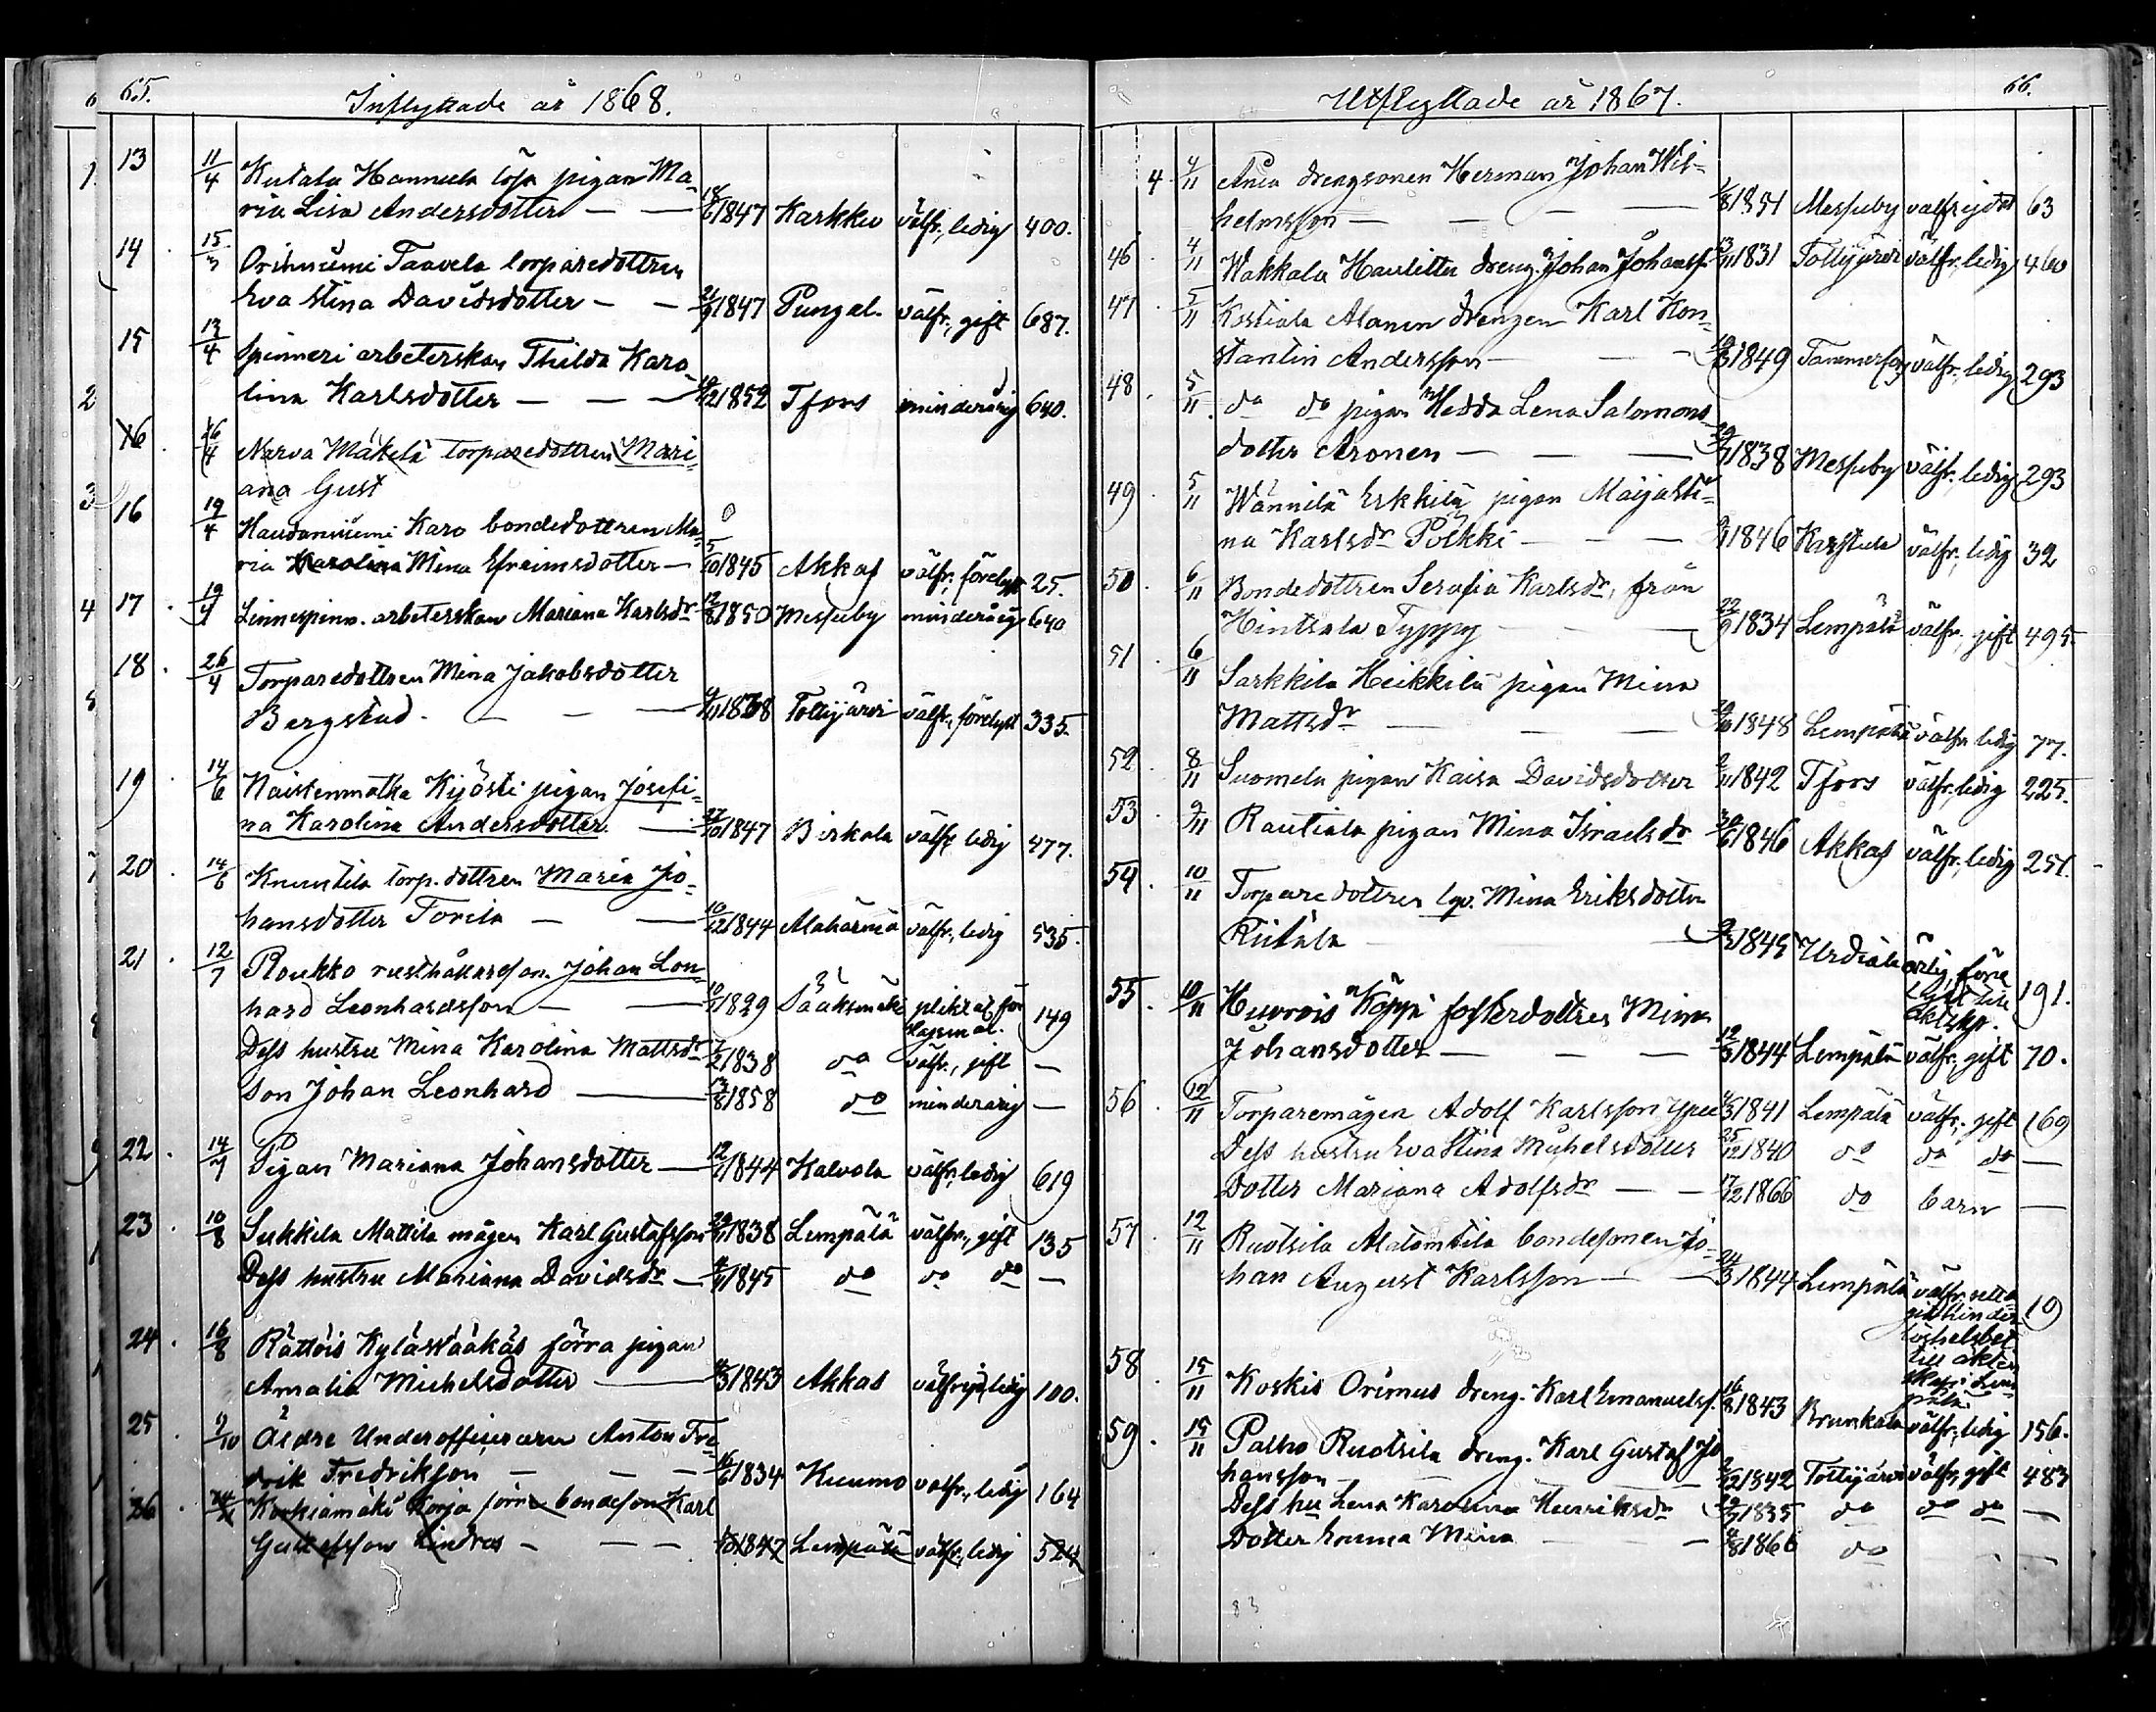 65.
Inflyttade år 1868.
13 11/4 Kutala Hannula lösa pigan Ma-
ria Lisa Andersdotter — — 18/6 1847 Karkku välfr., ledig 400.
14 . 15/3 Orihniemi Taavela torparedottren
Eva Stina Davidsdotter — — 21/9 1847 Pungal. välfr., gift 687.
15 13/4 Spinneri arbeterskan Thilda Karo-
lina Karlsdotter — — — 19/12 1852 Tfors minderårig 640.
16 . 16/4 Narva Mäkelä torparedottren Mari-
ana Gust
16 19/4 Haudaniemi Karo bondedottren Ma-
ria Karolina Mina Efraimsdotter — 5/10 1845 Akkas välfr., förelyst 25.
17 . 19/4 Linnespinn. arbeterskan Mariana Karlsdr 12/8 1850 Messuby minderårig 640
18 . 26/4 Torparedottren Mina Jakobsdotter
Bergstad. — — — 4/11 1838 Tottijärvi välfr., förelyst 335.
19 . 14/6 Naistenmatka Kyösti pigan Josefi-
na Karolina Andersdotter — 27/10 1847 Birkala välfr ledig 477.
20 . 14/6 Knuutila torp. dottren Maria Jo-
hansdotter Torila — — 10/12 1844 Alahärmä välfr., ledig 535.
21 . 12/7 Roukko rusthållareson Johan Leon-
hard Leonhardsson — — 1829 Sääksmäki plikt at för 149
Dess hustru Mina Karolina Mattsdr 1838 do välfr., gift —
Son Johan Leonhard — 13/8 1858 do minderårig —
22 . 14/7 Pigan Mariana Johansdotter — 1844 Kalvola välfr, ledig 619
23 . 10/8 Sukkila Mattila mågen Karl Gustafsson 1838 Lempälä välfr., gift 135
Dess hustru Mariana Davidsdr — 1845 do do do —
24 . 16/8 Rättöis Kyläsvääkäs förra pigan
Amalia Michelsdotter — 1843 Akkas välfrejd, ledig 100.
25 . 9/10 Äldre Underofficeraren Anton Fre-
drik Fredrikson — — — 16/6 1834 Kuumo välfr., ledig 164
26 . Korkiamäki Korja förre bondeson Karl
Gustafsson Lindros — — — 1847 Lempälä välfr, ledig 524
66.
Utflyttade år 1867.
4 4/11 Ania drengsonen Herman Johan Wil-
helmsson — — — — 1/8 1851 Messuby välfrejdad 63
46 . 4/11 Wakkala Hauletta dreng. Johan Johanss. 1831 Tottijärvi välfr., ledig 460
47 . 5/11 Kostiala Alanen drengen Karl Kon-
stantin Andersson — — — 1849 Tammerfors välfr., ledig 293
48 . 5/11 . do do pigan Hedda Lena Salomons
dotter Aronen — — — 1838 Messuby välfr., ledig 293
49 . 5/11 Wännilä Erkkilä pigan Maija Sti-
na Karlsdr Pölkki — — — 1846 Karstula välfr., ledig 32
50 . 6/11 Bondedottren Serafia Karlsdr, från
Hintsala Typpy — — 22/9 1834 Lempälä välfr., gift 495.
51 . 6/11 Sarkkila Heikkilä pigan Mina
Mattsdr — — — 1848 Lempälä välfr. ledig 77.
52 . 8/11 Suomela pigan Kaisa Davidsdotter 1842 Tfors välfr., ledig 225.
53 . 9/11 Rautiala pigan Mina Israelsdr 30/6 1846 Akkas välfr., ledig 251. -
54 . 10/11 Torparedottren Mina Eriksdotter
Riitala — — 1845 Urdiala ärlig före
lyst till 191.
äktskp.
55 . 10/11 Huvrois Koppi fosterdottren Mina
Johansdotter — — — 1844 Lempälä välfr., gift 70.
56 . 12/11 Torparemågen Adolf Karlsson 1841 Lempälä välfr., gift 169
Dess hustru Eva Stina Michelsdotter 25/12 1840 do do do —
Dotter Mariana Adolfsdr — — 17/12 1866 do barn —
57 . 12/11 Ruotsila Alatomtila bondesonen Jo-
han August Karlsson — — 24/3 1844 Lempälä välfr.
19
till äkten
skap i Lem-
pälä.
58 . 15/11 Koskis Orimus dreng. Karl Emanuelss. 16/8 1843 Brunkala välfr., ledig 156.
59 . 15/11 Palho Ruotsila dreng. Karl Gustaf Jo
hansson — — — 1842 Tottijärvi välfr., gift 483
Dess hu Lena Karolina Henriksdr 1835 do do do —
Dotter Emma Mina — — 4/8 1866 do — —
83